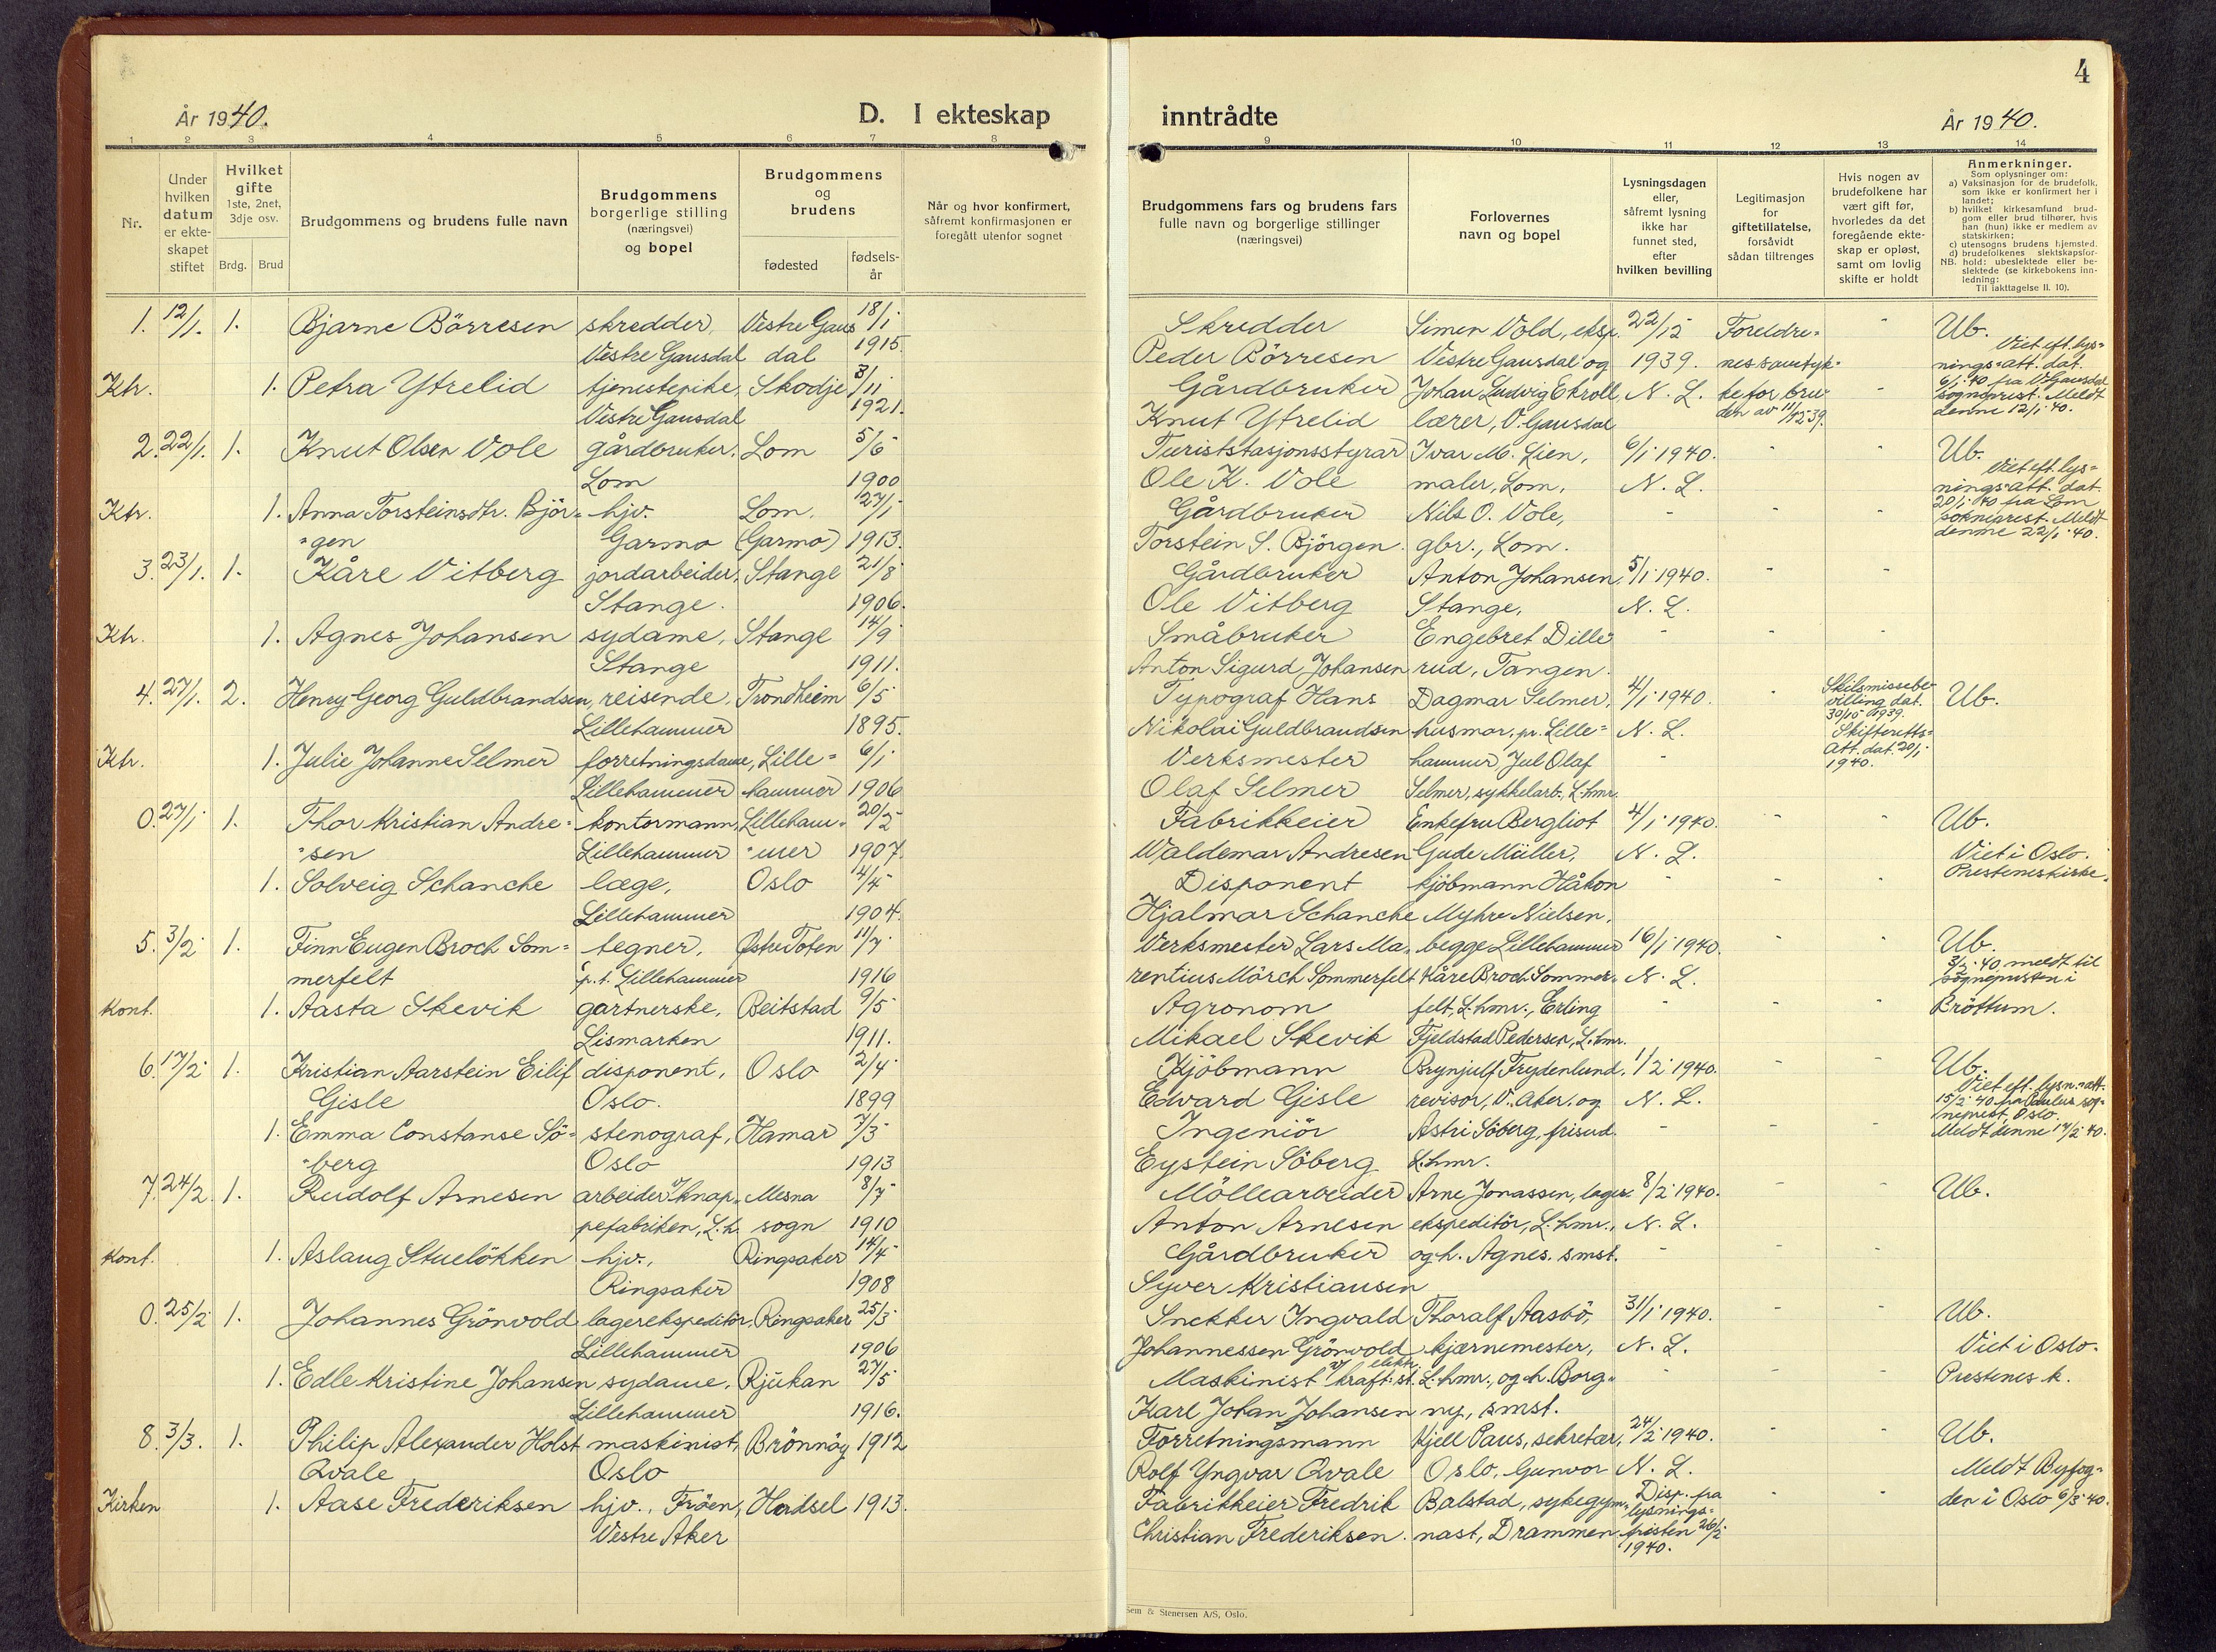 År 1940.
D. I ekteskap
1 2 3 4 5 6 7 8
Nr.
Under hvilken datum er ekteskapet stiftet
Hvilket gifte 1ste, 2net, 3dje osv.
Brdg. Brud
Brudgommens og brudens fulle navn
Brudgommens borgerlige stilling (næringsvei) og bopel
Brudgommens og brudens
fødested
fødsels-år
Når og hvor konfirmert, såfremt konfirmasjonen er foregått utenfor sognet
1. 12/1. 1. Bjarne Börresen skredder, Vestre Gaus 18/1
Vestre Gausdal dal 1915.
Ktr. 1. Petra Ytrelid tjenestepike, Skodje 3/11
Vestre Gausdal 1921.
2. 22/1. 1. Knut Olsen Vole gårdbruker. Lom 5/6
Lom 1900
Ktr. 1. Anna Torsteinsdtr. Björ= hjv. Lom. 27/1
"gen Garmo (Garmo) 1913.
3. 23/1. 1. Kåre Vitberg jordarbeider, Stange 21/8
Stange. 1906.
Ktr. 1. Agnes Johansen sydame, Stange 14/9
Stange 1911.
4. 27/1. 2. Henry Georg Guldbrandsen, reisende, Trondheim 6/5
Lillehammer 1895.
Ktr. 1. Julie Johanne Selmer forretningsdame, Lille= 6/1
Lillehammer hammer 1906
0. 27/1 1. Thor Kristian Andre= kontormann, Lilleham= 20/2
"sen Lillehammer "mer 1907.
1. Solveig Schanche læge, Oslo 14/4
Lillehammer 1904.
5. 3/2 1. Finn Eugen Broch Som= tegner, Østre Toten 11/7
merfelt p.t. Lillehammer 1916
Kont. 1. Aasta Skevik gartnerske, Beitstad 9/5
Lismarken 1911.
6. 17/2 1. Kristian Aarstein Eilif disponent, Oslo 2/4
Gisle Oslo. 1899
1. Emma Constanse Sö= stenograf, Hamar 7/3
"berg Oslo 1913
7. 24/2 1. Rudolf Arnesen arbeider v/ knap= Mesna 8/7
pefabriken, L.h. sogn 1910
Kont. 1. Aslaug Stuelökken hjv., Ringsaker 14/4
Ringsaker 1908
0. 25/2 1. Johannes Grönvold lagerekspeditör, Ringsaker 25/3
Lillehammer 1906
1. Edle Kristine Johansen sydame, Rjukan 27/5
Lillehammer 1916.
8. 3/3. 1. Philip Alexander Holst maskinist, Brönnöy 1912
Qvale Oslo
Kirken 1. Aase Frederiksen hjv., Fröen, Hadsel 1913.
Vestre Aker
4
inntrådte
År 1940.
9 10 11 12 13 14
Brudgommens fars og brudens fars fulle navn og borgerlige stillinger (næringsvei)
Forlovernes navn og bopel
Lysningsdagen eller, såfremt lysning ikke har funnet sted, efter hvilken bevilling
Legitimasjon for giftetillatelse, forsåvidt sådan tiltrenges
Hvis nogen av brudefolkene har vært gift før, hvorledes da det foregående ekteskap er opløst, samt om lovlig skifte er holdt
Anmerkninger.
Som oplysninger om:
a) Vaksinasjon for de brudefolk, som ikke er konfirmert her i landet;
b) hvilket kirkesamfund brudgom eller brud tilhører, hvis han (hun) ikke er medlem av statskirken;
c) utensogns brudens hjemsted.
d) brudefolkenes slektskapsforhold: ubeslektede eller beslektede (se kirkebokens innledning:
NB.
Til iakttagelse II. 10).
Skredder Simen Vold, eksp. 22/12 Foreldre= - Ub.
Peder Börresen Vestre Gausdal og 1939. nes samtyk= Viet eft. lys= nings=att. dat.
Gårdbruker Johan Ludvig Ekroll, N. L. ke for bru= - 6/1 40 fra V. Gausdal sogneprest. Meldt
Knut Ytrelid lærer, V. Gausdal den av 11/12 39. denne 12/1 40.
Turiststasjonsstyrar Ivar M. Lien, 6/1 1940. - - Ub.
Ole K. Vole maler, Lom, N. L. Viet eft. lys= nings=att. dat.
Gårdbruker Nils O. Vole, - - - 20/1 40 fra Lom sokneprest. Meldt
Torstein S. Björgen. gbr., Lom. denne 22/1 40.
Gårdbruker Anton Johansen, 5/1 1940. - -
Ole Vitberg Stange, N. L.
Småbruker Engebret Dille= - - -
Anton Sigurd Johansen rud, Tangen.
Typograf Hans Dagmar Selmer, 4/1 1940. - Skilsmissebe= villing dat. 30/15 1939. Ub.
Nikolai Guldbrandsen husmor, pr. Lille= N. L. Skifteretts=
Verksmester hammer, Jul Olaf - att. dat. 20/1 1940.
Olaf Selmer Selmer, sykkelarb., L.hmr.
Fabrikkeier Enkefru Bergliot 4/1 1940. - - Ub.
Waldemar Andresen Gude Müller, N. L. Viet i Oslo.
Disponent kjöbmann Håkon - - - Presteneskirke.
Hjalmar Schanche Myhre Nielsen,
Verksmester Lars Ma= begge Lillehammer 16/1 1940. - - Ub.
rentius Mörch Sommerfelt Kåre Broch Sommer= N. L. 3/2 40 meldt til sognepresten i
Agronom felt, L.hmr., Erling - - - Bröttum.
Mikael Skevik Fjeldstad Pedersen, L.hmr.
Kjöbmann Brynjulf Frydenlund, 1/2 1940. - - Ub.
Edward Gisle revisor, V. Aker, og N. L. Viet eft. lysn.=att. 15/2 40 fra Paulus sog= neprest, Oslo.
Ingeniör Astri Söberg, frisud. - - - Meldt denne 17/2 40.
Eystein Söberg L.hmr.
Möllearbeider Arne Jonassen, lager= 8/2 1940. - - Ub.
Anton Arnesen ekspeditör, L.hmr., N. L.
Gårdbruker og h. Agnes. smst. - - -
Syver Kristiansen
Snekker Ingvald Thoralf Aasbö, 31/1 1940. - - Ub.
Johannessen Grönvold kjærnemester, N. L. Viet i Oslo.
Maskinist v/ elektr. kraft.st. L.hmr., og h. Borg= - - - Prestenes k.
Karl Johan Johansen ny, smst.
Forretningsmann Kjell Paus, sekretær, 24/2 1940. - - Ub.
Rolf Yngvar Qvale Oslo, Gunvor N. L. Meldt Byfog=
Fabrikkeier Fredrik Balstad, sykegym= Disp. fra lysnings= - - den i Oslo 6/3 40.
Christian Frederiksen. nast, Drammen. fristen 26/2 1940.
Sem & Stenersen A/S, Oslo.